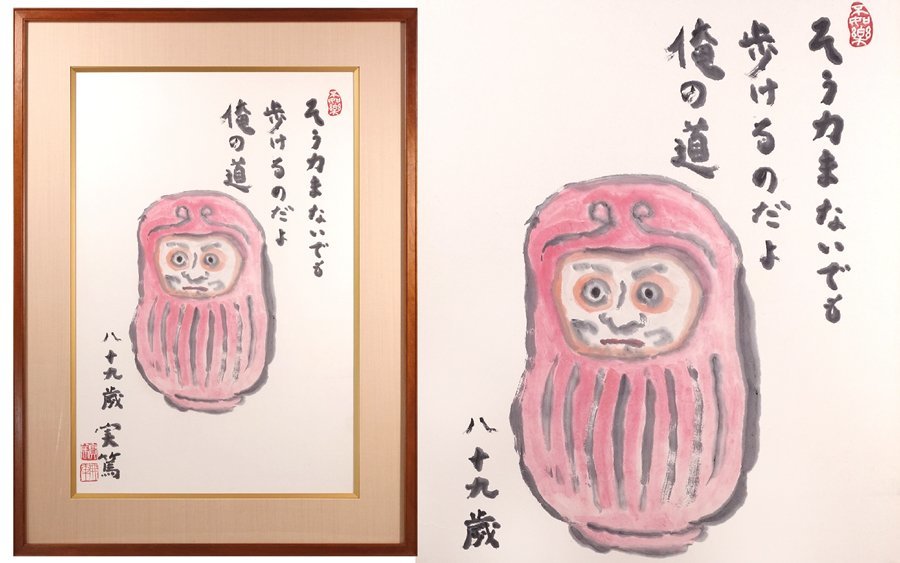 そう力まないでも
歩けるのだよ
俺の道
八十九歳
実篤
そう力まないでも
歩けるのだよ
俺の道
八十九歳